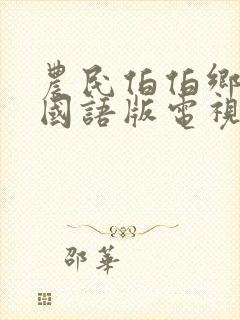 農民伯伯鄉
國語版電視
邵華